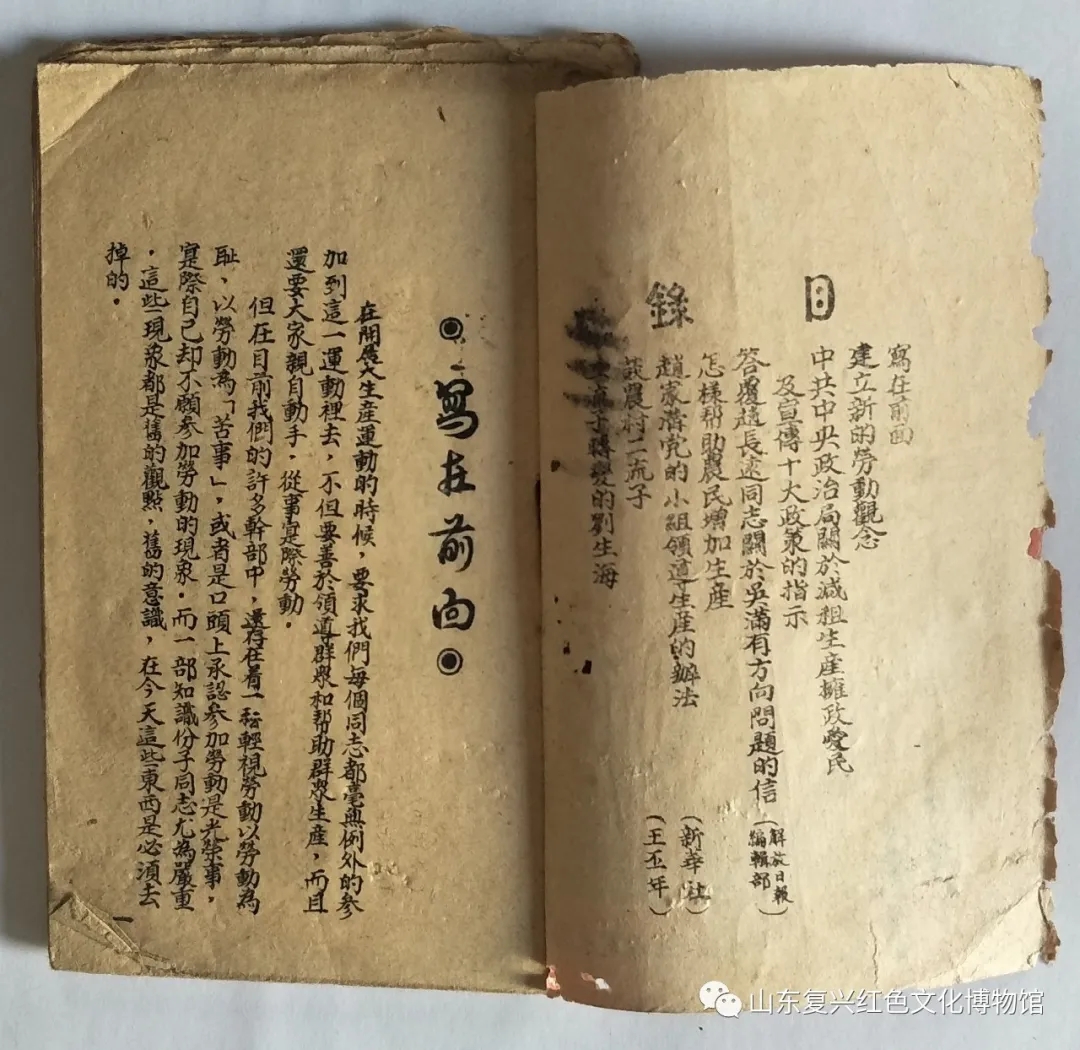 目錄
寫在前面
建立新的勞動觀念
中共中央政治局關於減租生產擁政愛民
及宣傳十大政策的指示
答覆趙長遠同志關於吳滿有方向問題的信(解放日報編輯部)
怎樣帮助農民增加生產
趙家溝党的小組領導生產的辦法(新華社)
談農村二流子(王丕年)
子轉變的劉生海
寫在前面
在開展大生產運動的時候,要求我們每個同志都毫無例外的參
加到這一運動裡去,不但要善於領導群眾和帮助群眾生產,而且
還要大家親自動手,從事寔際勞動.
但在目前我們的許多幹部中,還存在着一種輕視勞動以勞動為
耻、以勞動為「苦事」,或者是口頭上承認參加勞動是光榮事,
寔際自己却不願參加勞動的現象.而一部知識份子同志尤為嚴重
.這些現象都是舊的觀點,舊的意識,在今天這些東西是必須去
掉的.
一
山东复兴红色文化博物馆